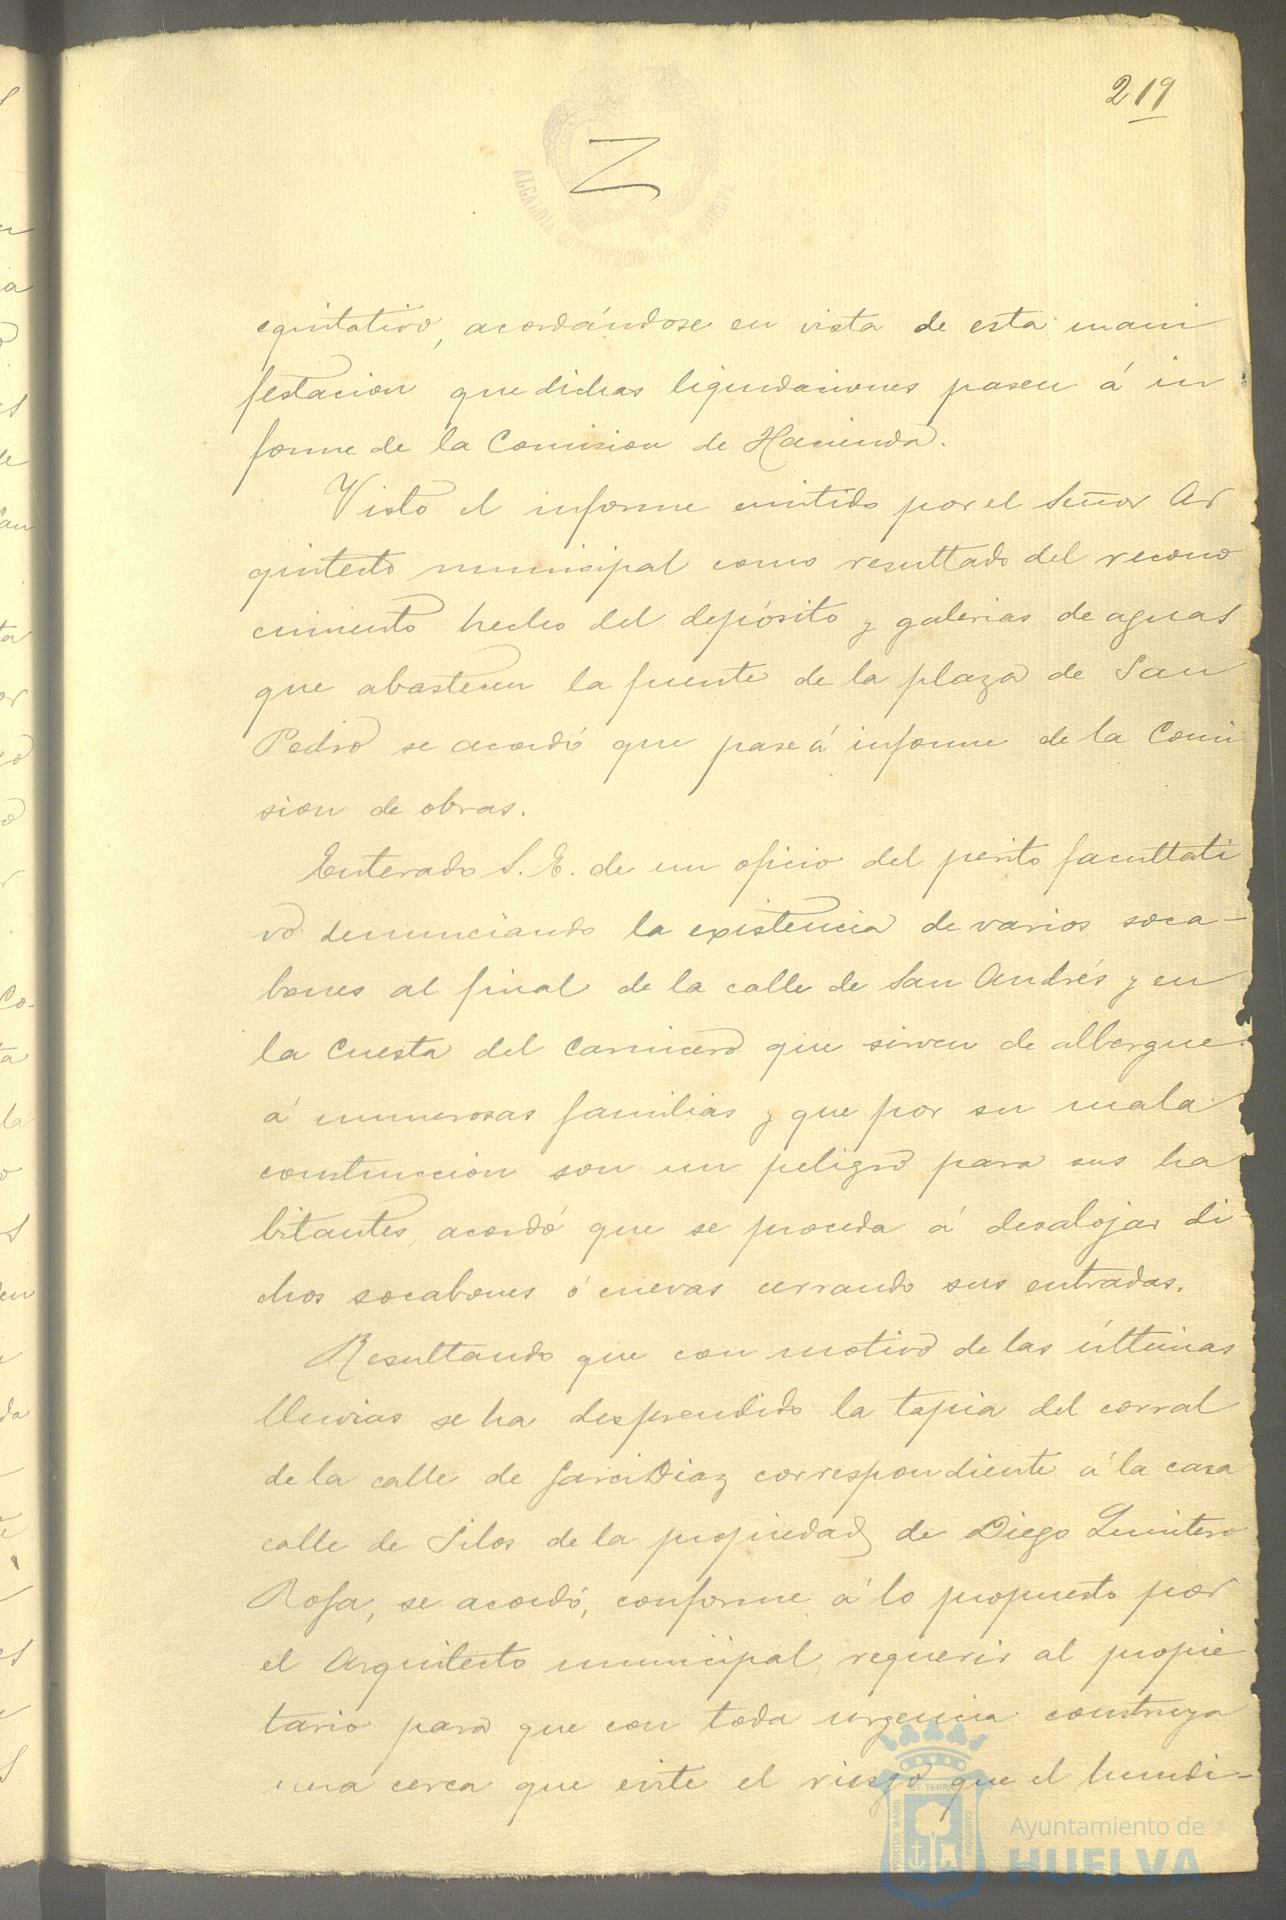 219
equitativo, acordándose en vista de esta mani
festacion que dichas liquidaciones pasen á in
forme de la Comision de Hacienda.
Visto el informe emitido por el Señor Ar
quitecto municipal como resultado del recono
cimiento hecho del depósito y galerias de aguas
que abastecen la fuente de la plaza de San
Pedro se acordó que pase á informe de la Comi
sion de obras.
Enterado S. E. de un oficio del perito facultati
vo denunciando la existencia de varios soca-
bones al final de la calle de San Andrés y en
la Cuesta del Carnicero que sirven de albergue
á numerosas familias y que por su mala
construccion son un peligro para sus ha
bitantes, acordó que se proceda á desalojar di
chos socabones ó cuevas cerrando sus entradas.
Resultando que con motivo de las últimas
lluvias se ha desprendido la tapia del corral
de la calle de Garci Diaz correspondiente á la casa
calle de Silos de la propiedad de Diego Quintero
Rofa, se acordó, conforme á lo propuesto por
el Arquitecto municipal, requerir al propie
tario para que con toda urgencia construya
una cerca que evite el riesgo que el hundi-
Ayuntamiento de
HUELVA